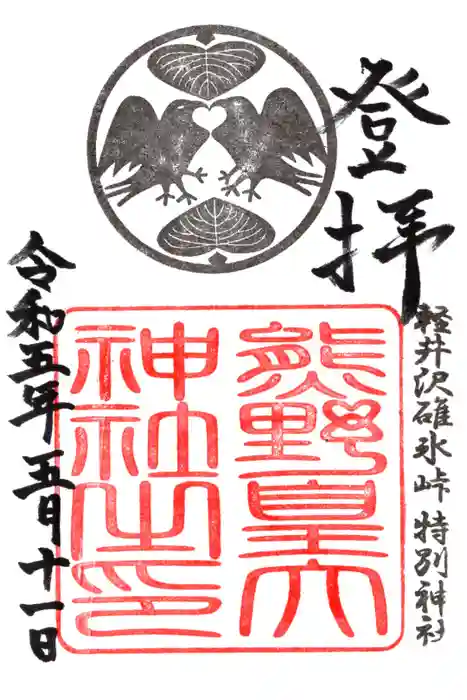 登拝
軽井沢碓氷峠 特別神社
熊野皇大
神社之印
令和五年 五月十一日